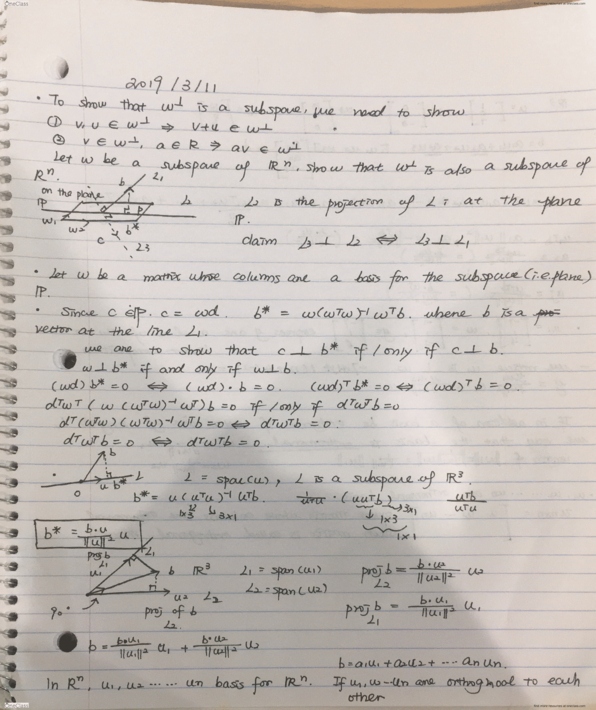 OneClass
2019/3/11
• To show that W⊥ is a subspace, we need to show
① v, u ∈ W⊥ ⇒ v+u ∈ W⊥
② v ∈ W⊥, a ∈ R ⇒ av ∈ W⊥
Let W be a subspace of ℝⁿ, show that W⊥ is also a subspace of
ℝⁿ.
on the plane b L₁
ℙ P L₂ L₂ is the projection of L₁ at the plane
W₁ W₂ b* ℙ.
c L3 claim L₃ ⊥ L₂ ⇔ L₃ ⊥ L₁
• Let W be a matrix whose columns are a basis for the subspace (i.e. plane)
ℙ.
• Since c ∈ ℙ. c = wd. b* = w(wᵀw)⁻¹ wᵀb. where b is a
vector at the line L₁.
we are to show that c ⊥ b* if/only if c ⊥ b.
w⊥b* if and only if w⊥b.
(wd) b* = 0 ⇔ (wd)·b = 0. (wd)ᵀb* = 0 ⇔ (wd)ᵀb = 0.
dᵀwᵀ (w (wᵀw)⁻¹ wᵀ)b = 0 if/only if dᵀwᵀb = 0
dᵀ(wᵀw)(wᵀw)⁻¹ wᵀb = 0 ⇔ dᵀwᵀb = 0.
dᵀwᵀb = 0 ⇔ dᵀwᵀb = 0.
b
0 u b* L L = span(u), L is a subspace of ℝ³
b* = u(uᵀu)⁻¹ uᵀb. 1/uᵀu · (uuᵀb) uᵀb/uᵀu
1x3 3x1 3x1
1x3
1x1
b* = b·u/||u||² u.
proj b L₁ L₁
u₁ b ℝ³ L₁ = span(u₁) proj b L₂ = b·u₂/||u₂||² u₂
u₂ L₂ L₂ = span(u₂)
90° proj of b L₂ proj b L₁ = b·u₁/||u₁||² u₁
b = b·u₁/||u₁||² u₁ + b·u₂/||u₂||² u₂
b = a₁u₁ + a₂u₂ + ··· an un.
In ℝⁿ, u₁, u₂ ······ un basis for ℝⁿ. If u₁, u₂ ~ un are orthogonal to each
other